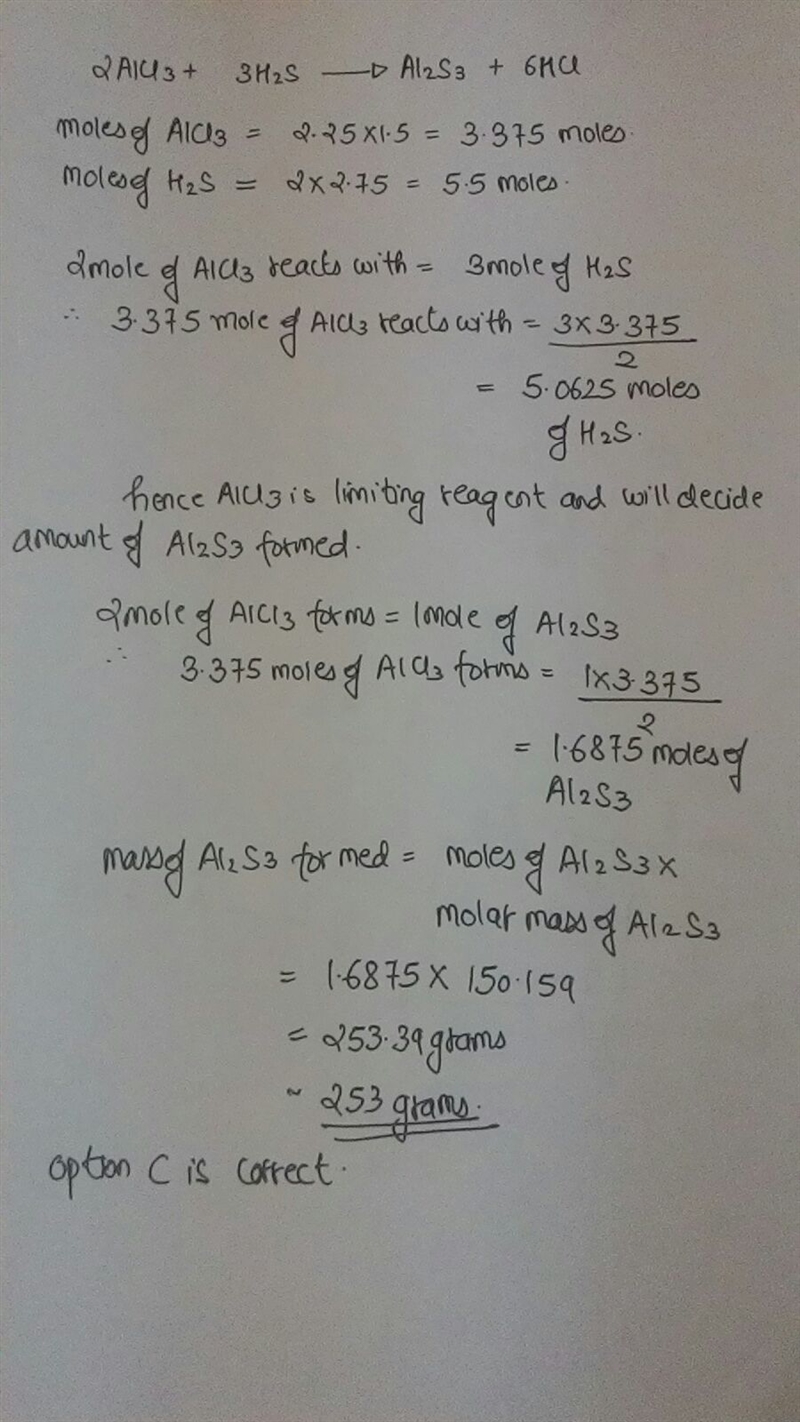 2AlCl3 + 3H2S → Al2S3 + 6HCl
moles of AlCl3 = 2.25×1.5 = 3.375 moles.
Moles of H2S = 2×2.75 = 5.5 moles.
2mole of AlCl3 reacts with = 3mole of H2S
∴ 3.375 mole of AlCl3 reacts with = 3×3.375
2
= 5.0625 moles
of H2S.
hence AlCl3 is limiting reagent and will decide
amount of Al2S3 formed.
2mole of AlCl3 forms = 1mole of Al2S3
∴ 3.375 moles of AlCl3 forms = 1×3.375
2
= 1.6875 moles of
Al2S3
mass of Al2S3 formed = moles of Al2S3 ×
molar mass of Al2S3
= 1.6875 × 150.159
= 253.39 grams
~ 253 grams.
option C is correct.